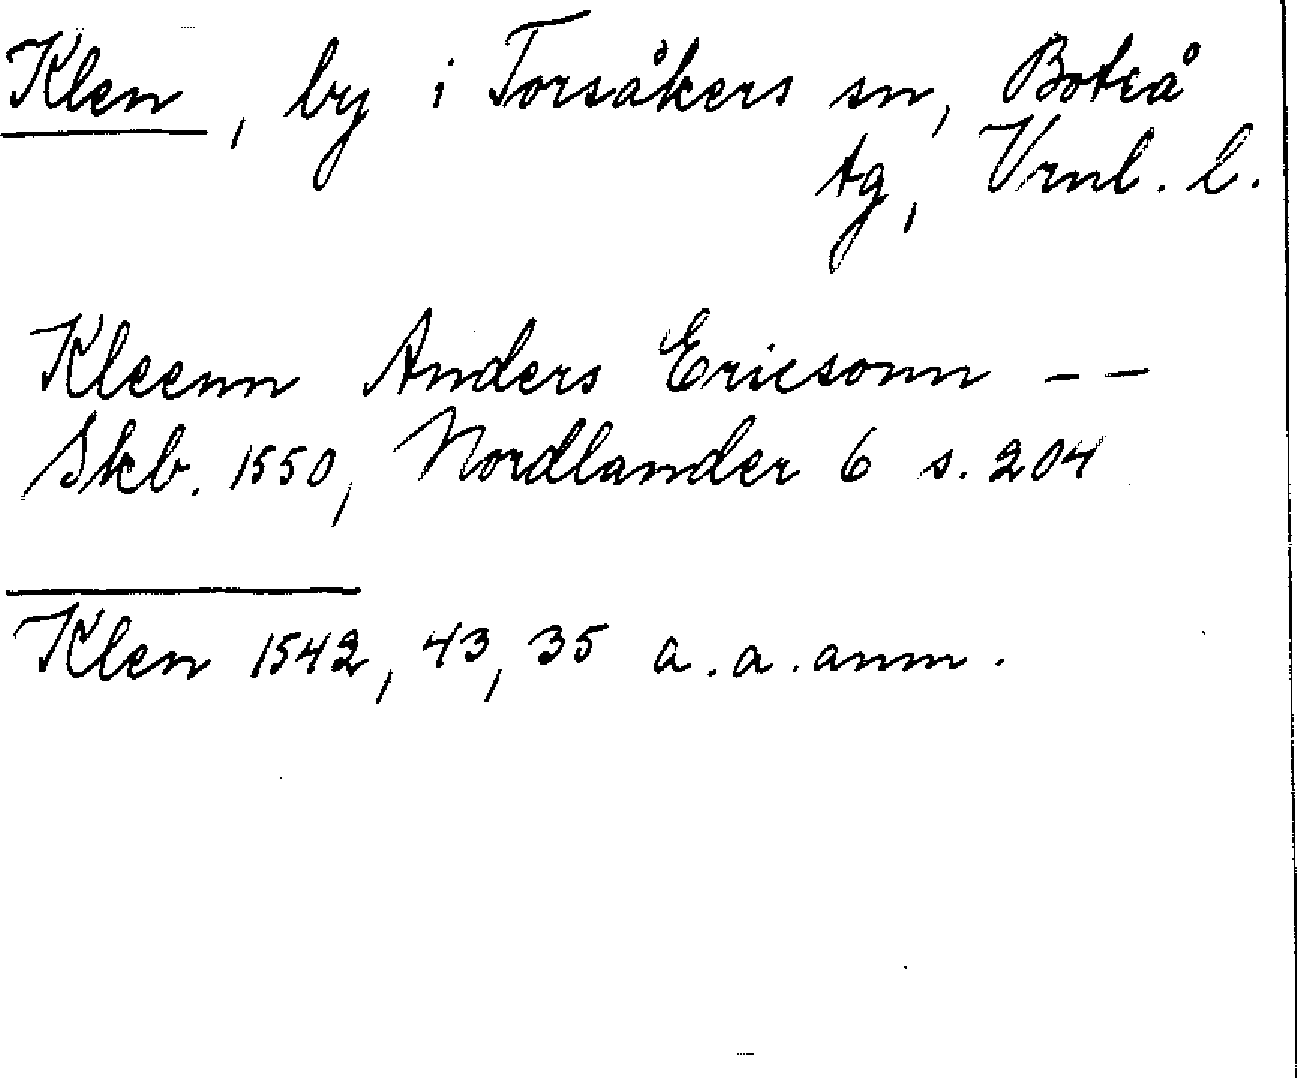 Klen, by i Torsåkers sn, Boteå
tg, Vrnl. l.
Kleenn Anders Ericsonn - -
Skb. 1550, Nordlander 6 s. 204
Klen 1542, 43, 35 a. a. anm.